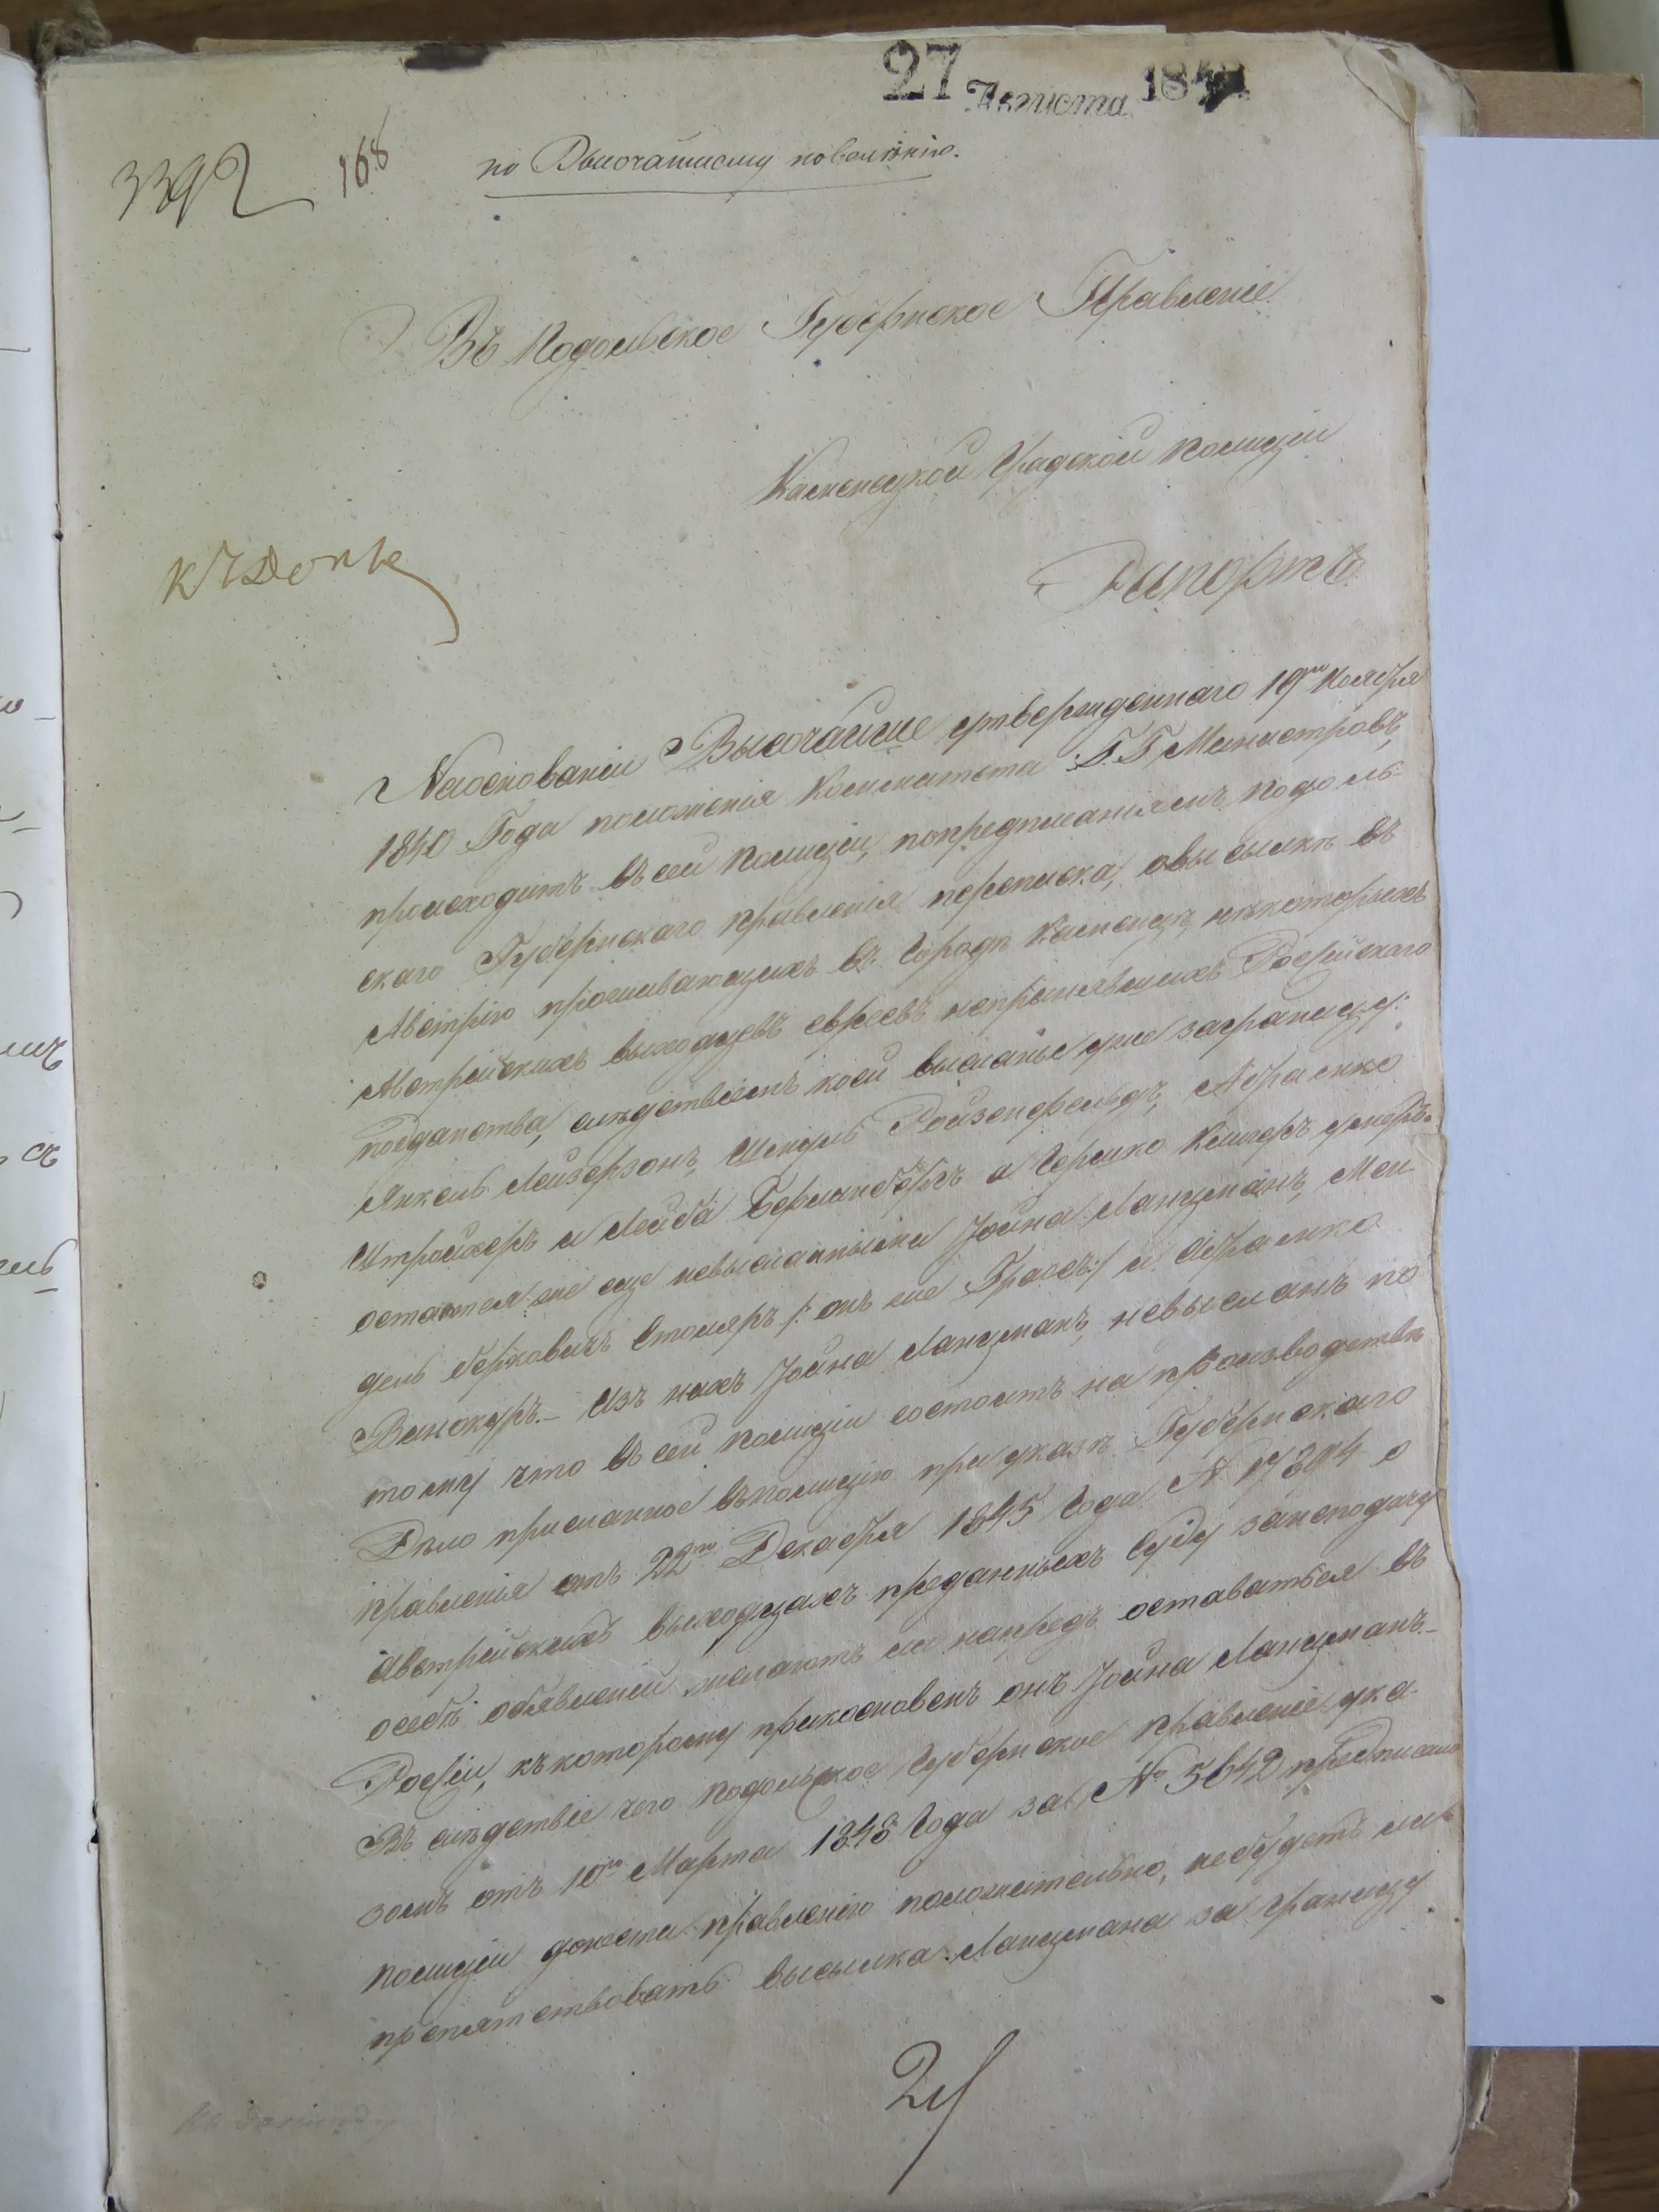 27 Августа 184
3392 168
по Высочайшему повелѣнію.
Въ Подольское Губернское Правленіе
Каменецкой Градской Полиціи
Рапортъ
Наоснованіи Высочайше утвержденнаго 19го Ноября
1840 Года положенія Коммитета Г.Г Министровъ,
происходитъ въ сей Полиціи, попредписаніямъ Подоль-
скаго Губернскаго Правленія переписка, овысылкѣ въ
Австрію проживающихъ въ Городѣ Каменцѣ нѣкоторыхъ
Австрійскихъ выходцевъ евреевъ непринявшихъ Россійскаго
подданства, слѣдствіемъ коей высланые уже заграницу:
Янкель Лейзерзонъ, Шендль Ройзенфельдъ, Абрамко
Штрайхеръ и Лейба Берлинбергъ а Гершко Кельтеръ умеръ.
остаются же еще невысланными Јойна Ланцманъ, Мен-
дель Берковичъ Столяръ /: онъ же Грассъ:/ и Абрамко
Винокуръ.- Изъ нихъ Јойна Ланцманъ, невысланъ по
тому что въ сей Полиціи состоитъ на производствѣ
Дѣло присланное въполицію при указѣ Губернскаго
Правленія отъ 22го Декабря 1845 Года № 17304 о
Австрійскихъ выходцахъ преданныхъ Суду занеподачу
осебѣ объявленій желаютъ ли напредъ оставаться въ
Россіи, къ которому прикосновенъ онъ Јойна Ланцманъ-
Въ слѣдствіе чего Подольское Губернское Правленіе ука-
зомъ отъ 10го Марта 1848 Года за № 5642 предписало
Полиціи донести Правленію положительно, небудетъ ли
препятствовать высылка Ланцмана за границу